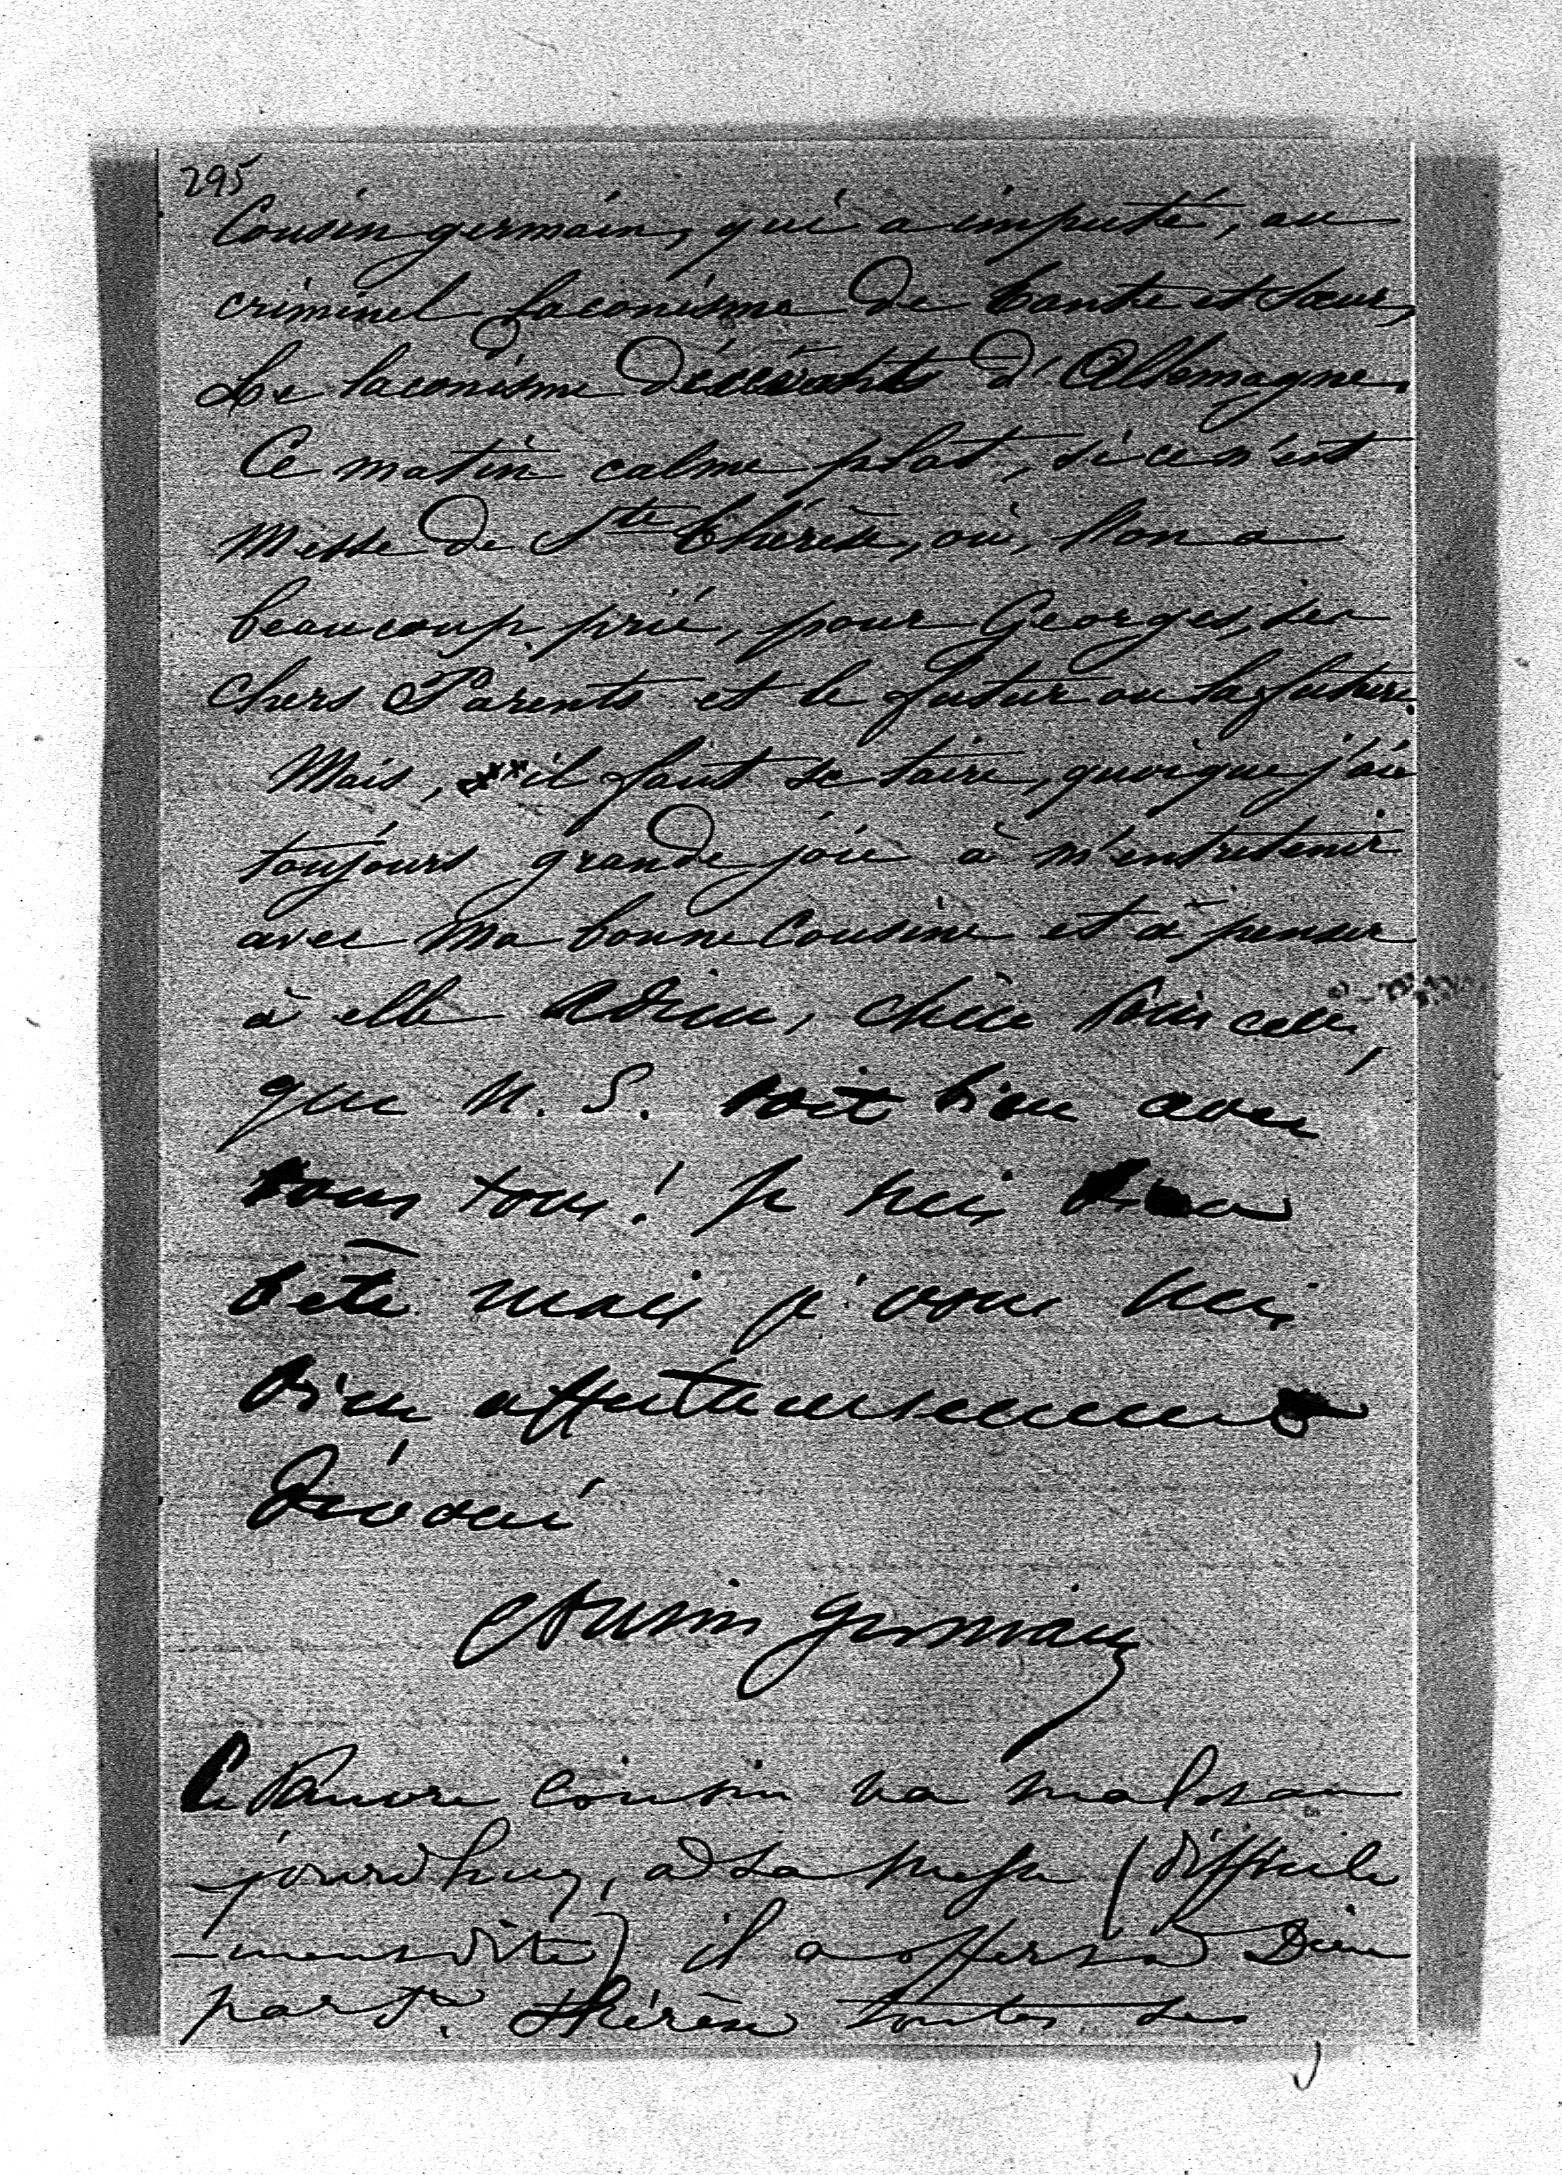 295
Cousin germain, qui a imputé, au
criminel laconisme de tante et sœur,
Le laconisme d'Allemagne.
Ce matin calme plat, si ce n'est
Messe de Ste Thérèse, où, l'on a
beaucoup prié, pour Georges, ses
chers Parents et le futur ou la future.
Mais, il faut se taire, quoique j'aie
toujours grande joie à m'entretenir
avec ma bonne Cousine et à penser
à elle Adieu, chère
que N. S. soit bien avec
vous tous! Je suis bien
bête mais je vous suis
bien affectueusement
dévoué
Cousin germain
Le Pauvre cousin va mal
jourd'huy, a Sa Messe (difficile
-ment dite) il a offert à Dieu
par Ste Thérèse toutes ses